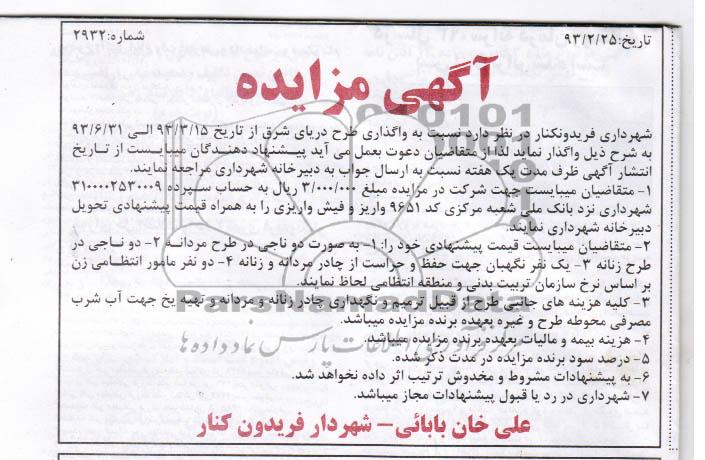 تاریخ:۹۳/۲/۲۵
شماره:۲۹۳۲
آگهی مزایده
شهرداری فریدونکنار در نظر دارد نسبت به واگذاری طرح دریای شرق از تاریخ ۹۳/۳/۱۵ الی ۹۳/۶/۳۱
به شرح ذیل واگذار نماید لذا از متقاضیان دعوت بعمل می آید پیشنهاد دهندگان میبایست از تاریخ
انتشار آگهی ظرف مدت یک هفته نسبت به ارسال جواب به دبیرخانه شهرداری مراجعه نمایند.
۱- متقاضیان میبایست جهت شرکت در مزایده مبلغ ۳/۰۰۰/۰۰۰ ریال به حساب سپرده ۳۱۰۰۰۰۲۵۳۰۰۰۹
شهرداری نزد بانک ملی شعبه مرکزی کد ۹۶۵۱ واریز و فیش واریزی را به همراه قیمت پیشنهادی تحویل
دبیرخانه شهرداری نمایند.
۲- متقاضیان میبایست قیمت پیشنهادی خود را: ۱- به صورت دو ناجی در طرح مردانه ۲- دو ناجی در
طرح زنانه ۳- یک نفر نگهبان جهت حفظ و حراست از چادر مردانه و زنانه ۴- دو نفر مامور انتظامی زن
بر اساس نرخ سازمان تربیت بدنی و منطقه انتظامی لحاظ نمایند.
۳- کلیه هزینه های جانبی طرح از قبیل ترمیم و نگهداری چادر زنانه و مردانه و تهیه یخ جهت آب شرب
مصرفی محوطه طرح و غیره بعهده برنده مزایده میباشد.
۴- هزینه بیمه و مالیات بعهده برنده مزایده میباشد.
۵- درصد سود برنده مزایده در مدت ذکر شده.
۶- به پیشنهادات مشروط و مخدوش ترتیب اثر داده نخواهد شد.
۷- شهرداری در رد یا قبول پیشنهادات مجاز میباشد.
علی خان بابائی- شهردار فریدون کنار
ParsNamadData